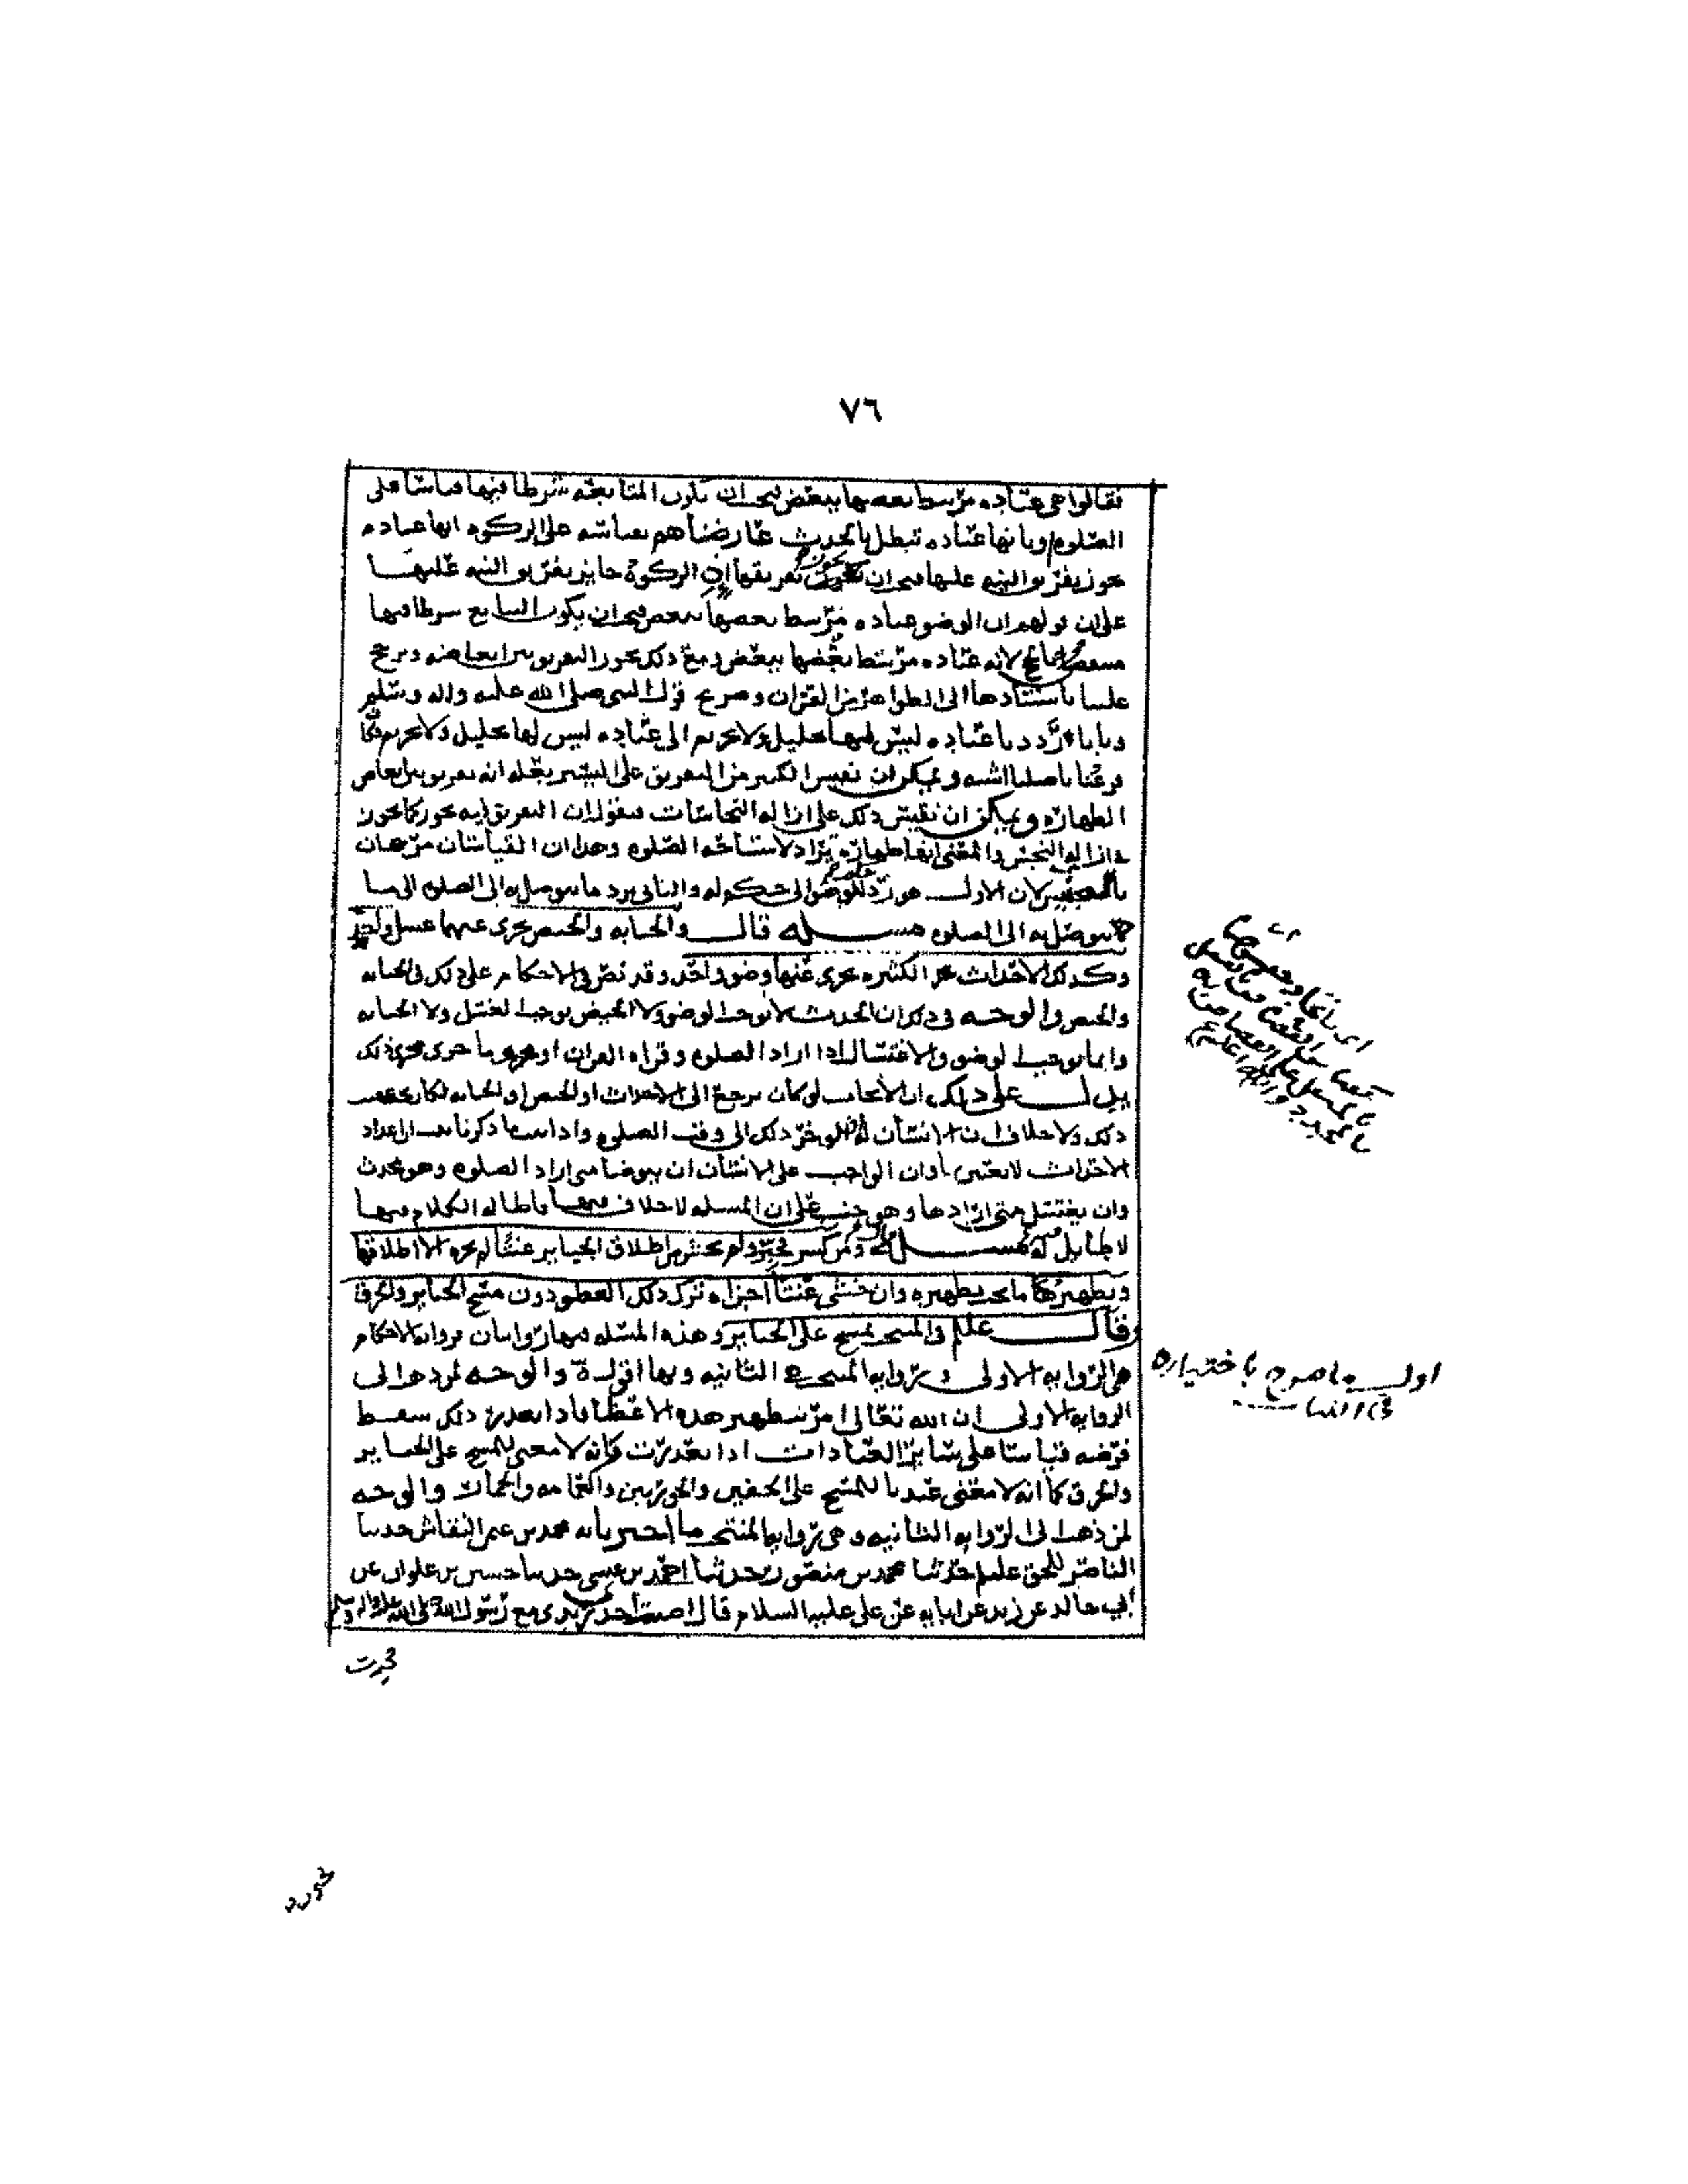 ٧٦
فقالوا هي عباده مرتبط بعضها ببعض فيجب ان تكون المتابعه شرطا فيها قياسا على
الصلوه وبانها عباده تبطل بالحدث عارضناهم بقياسه على الزكوه انها عباده
يجوز تفريق النيه عليها فيجب ان يجوز تفريقها لان الزكوة جايز تفريق النيه عليها
على ان قولهم ان الوضو عباده مرتبط بعضها ببعض فيجب ان يكون التتابع شرطا فيها
منتقض بالحج لانه عباده مرتبط بعضها ببعض ومع ذلك يجوز التفريق بين ابعاضه وترجح
علتنا باستنادها الى الظواهر من القران وصريح قول النبي صلى الله عليه واله وسلم
وبانا نرد عباده ليس فيها تحليل ولا تحريم الى عباده ليس لها تحليل ولا تحريم
فرعنا باصلنا اشبه ويمكن ان نقيس الكثير من التفريق على اليسير بعله انه تفريق بين ابعاض
الطهاره ويمكن ان نقيس ذلك على ازاله النجاسات فنقول ان التفريق فيه يجوز كما يجوز
في ازاله النجس والمعنى انها طهاره تراد لاستباحه الصلوه وهذان القياسان مرجحان
لان الاول هو رد الوضو الى شكله والثاني يرد ما يتوصل به الى الصلوه الى ما
يتوصل به الى الصلوه مسله قال والجنابه والحيض يجزي عنهما غسل واحد
وكذلك الاحداث الكثيره يجزي عنها وضو واحد وقد نص في الاحكام على ذلك في الجنابه
والحيض والوجه في ذلك ان الحدث لا يوجب الوضو ولا الحيض يوجب الغسل ولا الجنابه
وانما يوجب الوضو والاغتسال اذا اراد الصلوه وقراه القران او ما جرى مجرى ذلك
يدل على ذلك ان الايجاب لو كان يرجع الى الاحداث او الحيض او الجنابه لكان يجب
ذلك ولا خلاف ان الانسان له ان يوخر ذلك الى وقت الصلوه واذا ثبت ما ذكرنا ثبت ان اعداد
الاحداث لا تعتبر وان الواجب على الانسان ان يتوضا متى اراد الصلوه وهو محدث
وان يغتسل متى ارادها وهو جنب على ان المسله لا خلاف فيها واطاله الكلام فيها
لا طايل له مسله ومن كسر فجبر ولم يخش من اطلاق الجباير عنتا لم يجزه الا اطلاقها
وتطهير ما يجب تطهيره وان خشي عنتا اجزاه ترك ذلك العضو دون مسح الجباير والخرق
وقال عليلم في المنتخب يمسح على الجباير وهذه المسله فيها روايتان روايه الاحكام
هي الروايه الاولى وروايه المنتخب هي الثانيه وبها اقول والوجه لمن ذهب الى
الروايه الاولى ان الله تعالى امر بتطهير هذه الاعضا فاذا تعذر ذلك سقط
فرضه قياسا على سائر العبادات اذا تعذرت فانه لا معنى للمسح على الجباير
والخرق كما انه لا معنى عندنا للمسح على الخفين والجوربين والعمامه والخمار والوجه
لمن ذهب الى الروايه الثانيه وهي روايه المنتخب ما اخبرنا به محمد بن عمر النقاش حدثنا
الناصر للحق عليلم حدثنا محمد بن منصور حدثنا احمد بن عيسى حدثنا حسين بن علوان عن
ابي خالد عن زيد عن ابايه عن علي عليه السلام قال اصيب احد زندي مع رسول الله صلى الله عليه واله وسلم
فجبرت
اول ما صرح باختياره